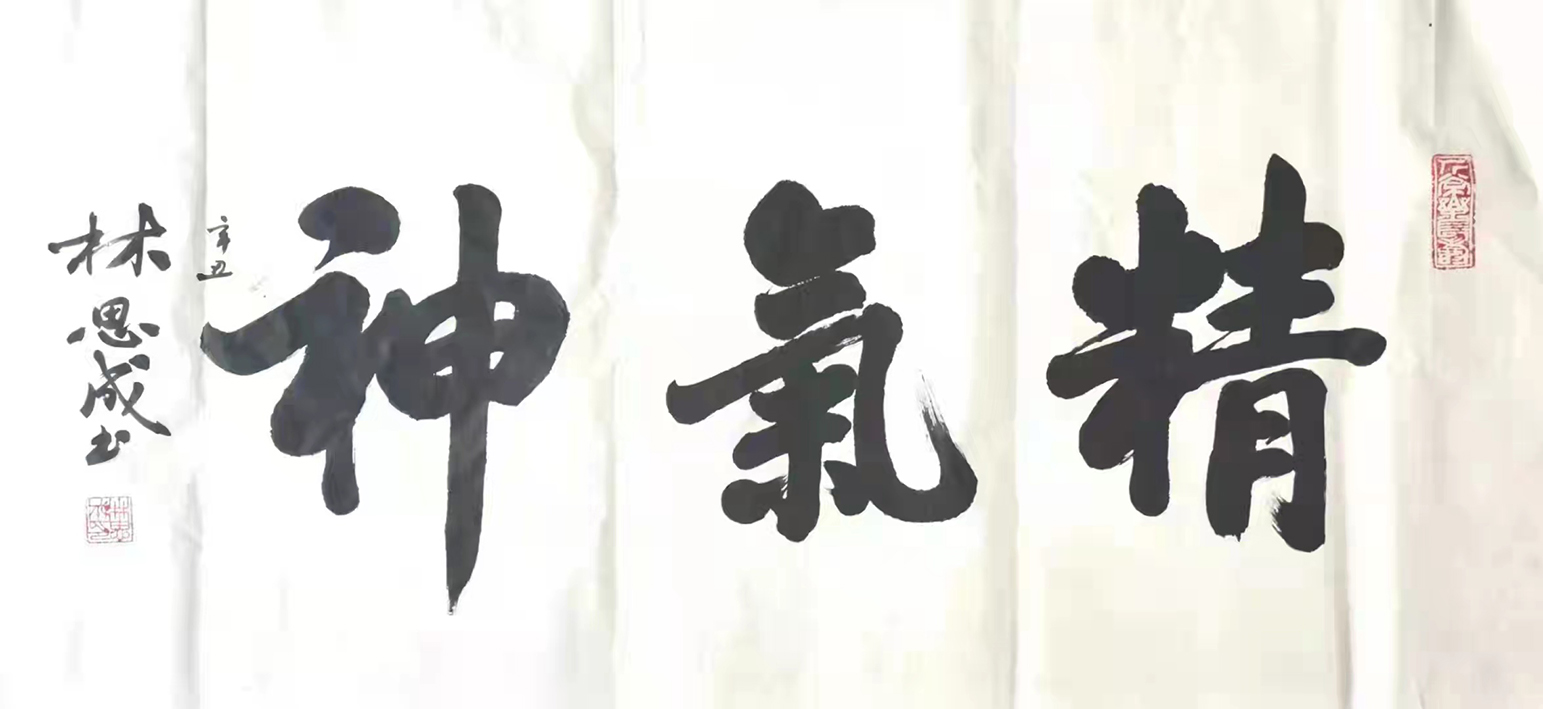 精氣神
辛丑
林思成书